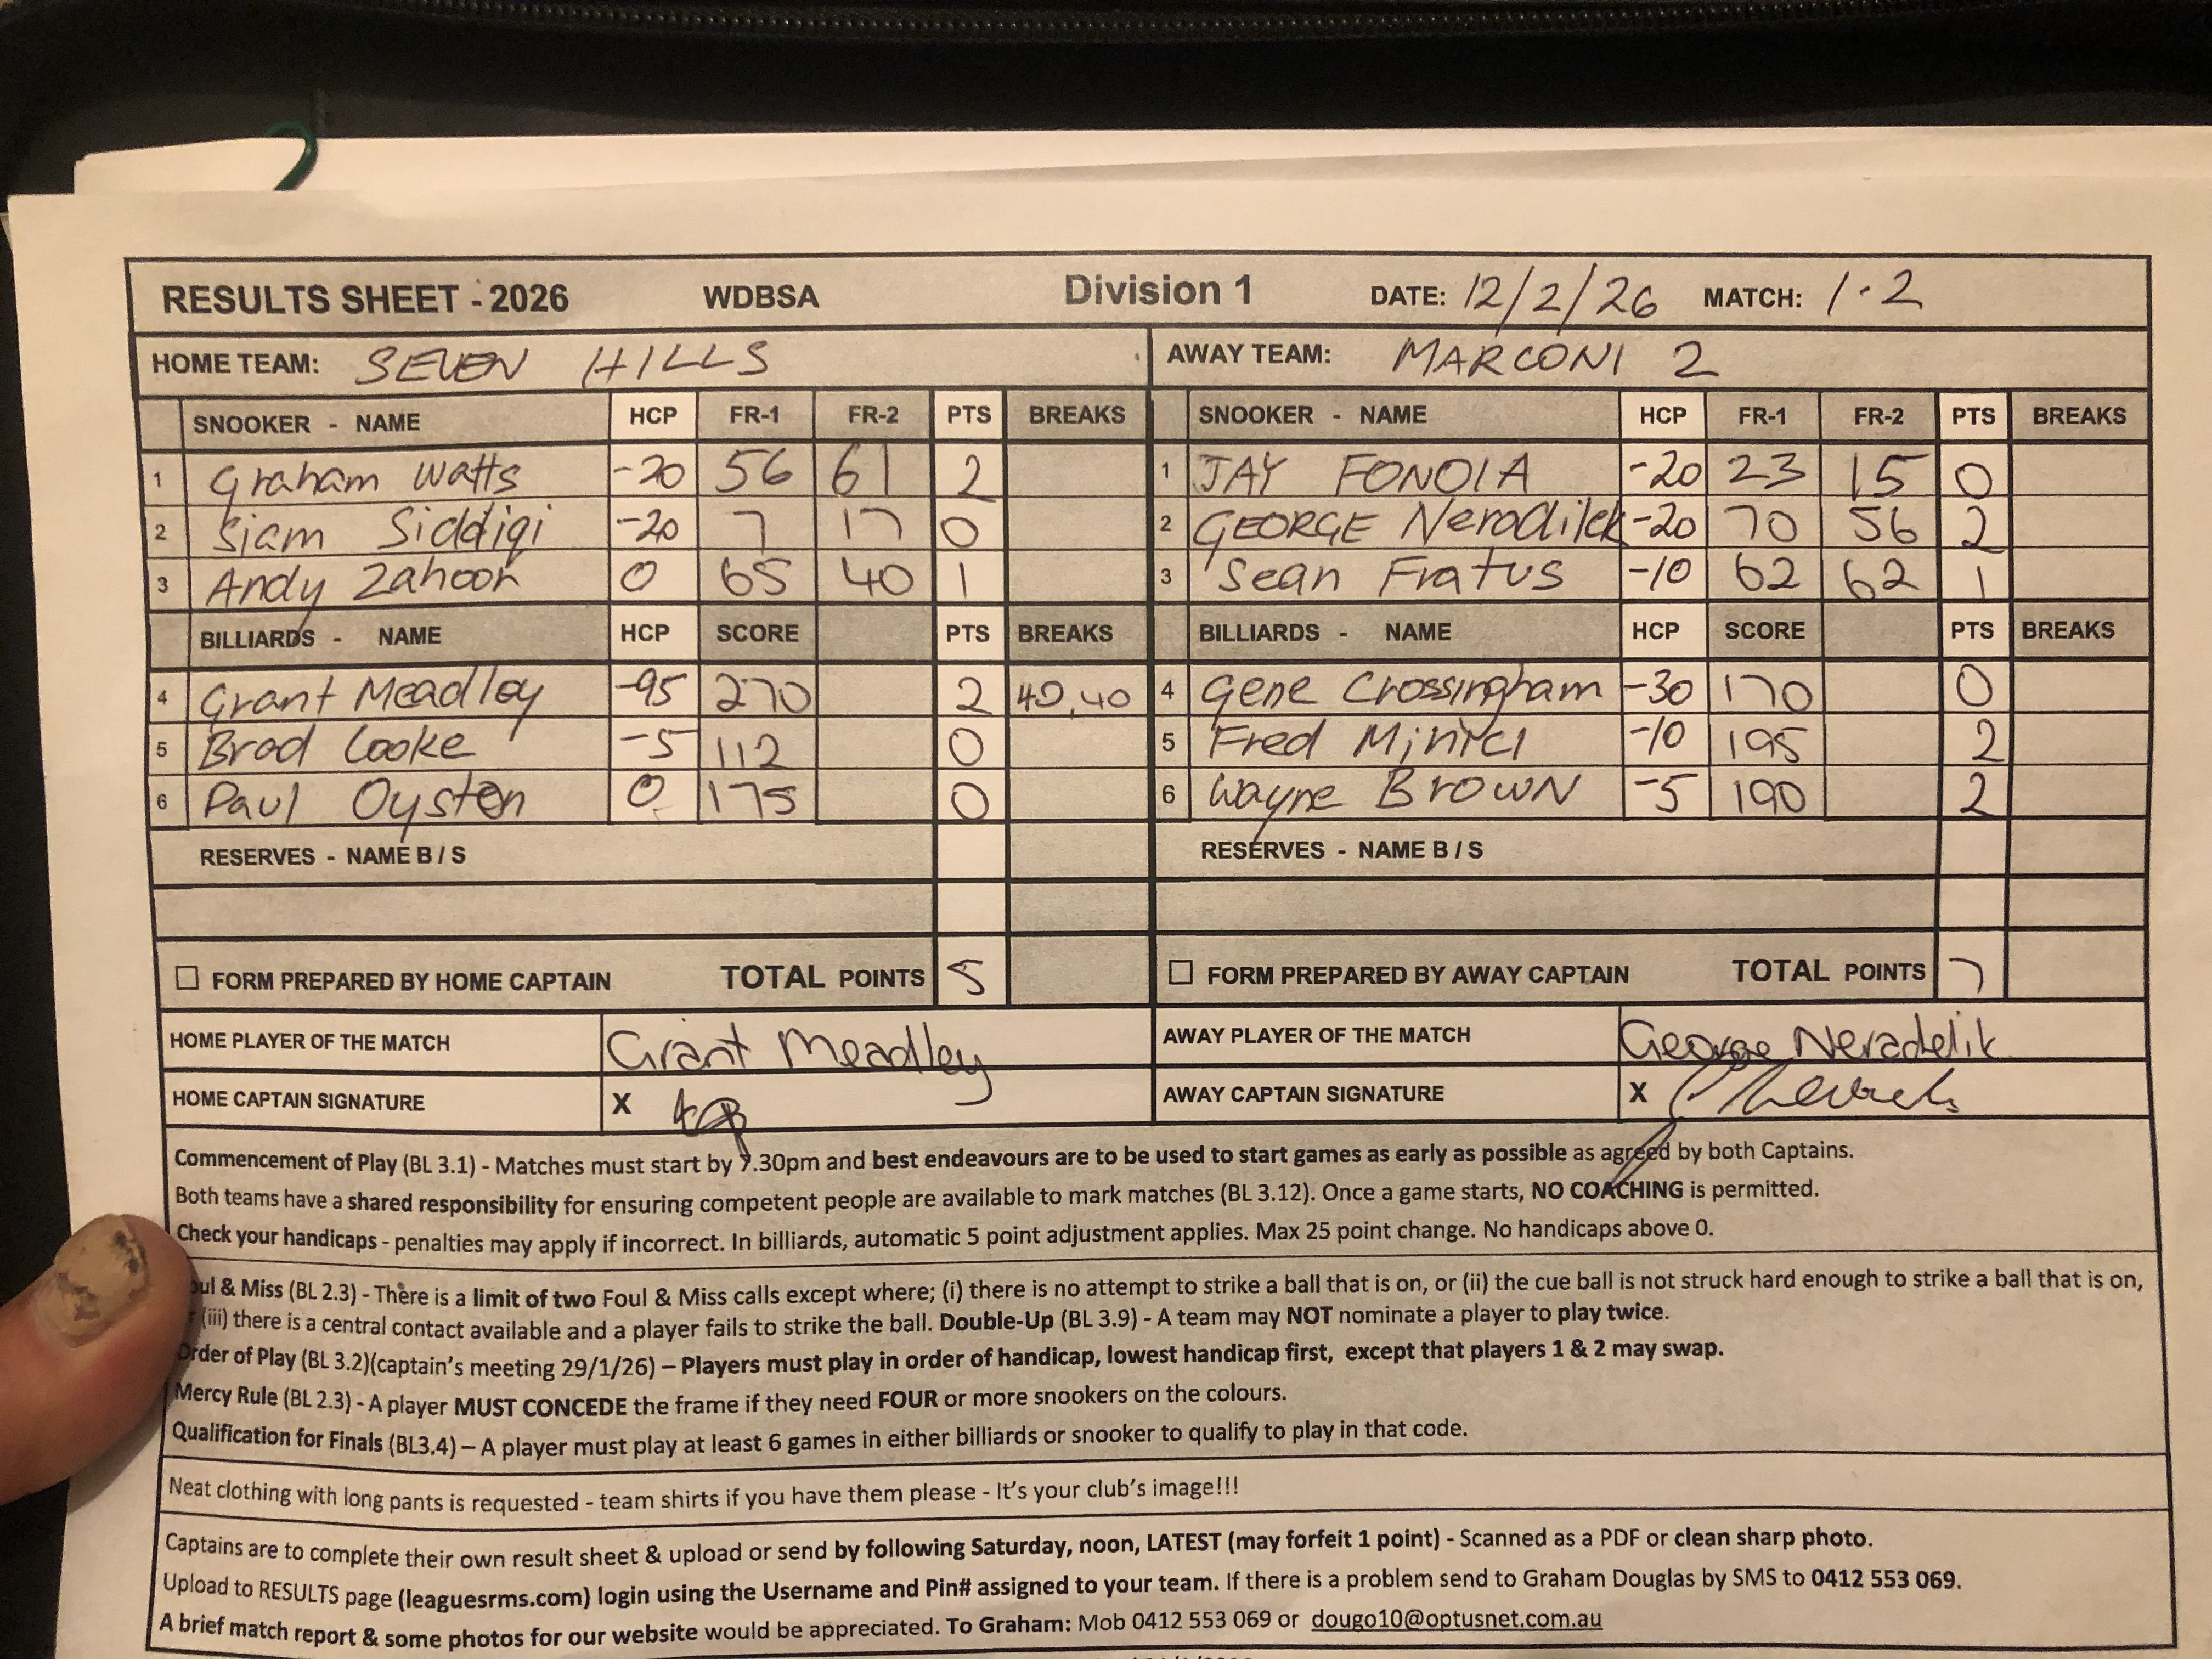 RESULTS SHEET - 2026 WDBSA Division 1 DATE: 12/2/26 MATCH: 1.2
HOME TEAM: SEVEN HILLS AWAY TEAM: MARCONI 2
SNOOKER - NAME HCP FR-1 FR-2 PTS BREAKS SNOOKER - NAME HCP FR-1 FR-2 PTS BREAKS
1 Graham Watts -20 56 61 2 1 JAY FONOIA -20 23 15 0
2 Siam Siddiqi -20 7 17 0 2 GEORGE Neradilek -20 70 56 2
3 Andy Zahoor 0 65 40 1 3 Sean Fratus -10 62 62 1
BILLIARDS - NAME HCP SCORE PTS BREAKS BILLIARDS - NAME HCP SCORE PTS BREAKS
4 Grant Meadley -95 270 2 40,40 4 Gene Crossingham -30 170 0
5 Brad Cooke -5 112 0 5 Fred Minici -10 195 2
6 Paul Oysten 0 175 0 6 Wayne BROWN -5 190 2
RESERVES - NAME B / S RESERVES - NAME B / S
☐ FORM PREPARED BY HOME CAPTAIN TOTAL POINTS 5 ☐ FORM PREPARED BY AWAY CAPTAIN TOTAL POINTS 7
HOME PLAYER OF THE MATCH Grant Meadley AWAY PLAYER OF THE MATCH George Neradelik
HOME CAPTAIN SIGNATURE X AWAY CAPTAIN SIGNATURE X
Commencement of Play (BL 3.1) - Matches must start by 7.30pm and best endeavours are to be used to start games as early as possible as agreed by both Captains.
Both teams have a shared responsibility for ensuring competent people are available to mark matches (BL 3.12). Once a game starts, NO COACHING is permitted.
Check your handicaps - penalties may apply if incorrect. In billiards, automatic 5 point adjustment applies. Max 25 point change. No handicaps above 0.
oul & Miss (BL 2.3) - There is a limit of two Foul & Miss calls except where; (i) there is no attempt to strike a ball that is on, or (ii) the cue ball is not struck hard enough to strike a ball that is on,
(iii) there is a central contact available and a player fails to strike the ball. Double-Up (BL 3.9) - A team may NOT nominate a player to play twice.
Order of Play (BL 3.2)(captain's meeting 29/1/26) – Players must play in order of handicap, lowest handicap first, except that players 1 & 2 may swap.
Mercy Rule (BL 2.3) - A player MUST CONCEDE the frame if they need FOUR or more snookers on the colours.
Qualification for Finals (BL3.4) – A player must play at least 6 games in either billiards or snooker to qualify to play in that code.
Neat clothing with long pants is requested - team shirts if you have them please - It's your club's image!!!
Captains are to complete their own result sheet & upload or send by following Saturday, noon, LATEST (may forfeit 1 point) - Scanned as a PDF or clean sharp photo.
Upload to RESULTS page (leaguesrms.com) login using the Username and Pin# assigned to your team. If there is a problem send to Graham Douglas by SMS to 0412 553 069.
A brief match report & some photos for our website would be appreciated. To Graham: Mob 0412 553 069 or dougo10@optusnet.com.au